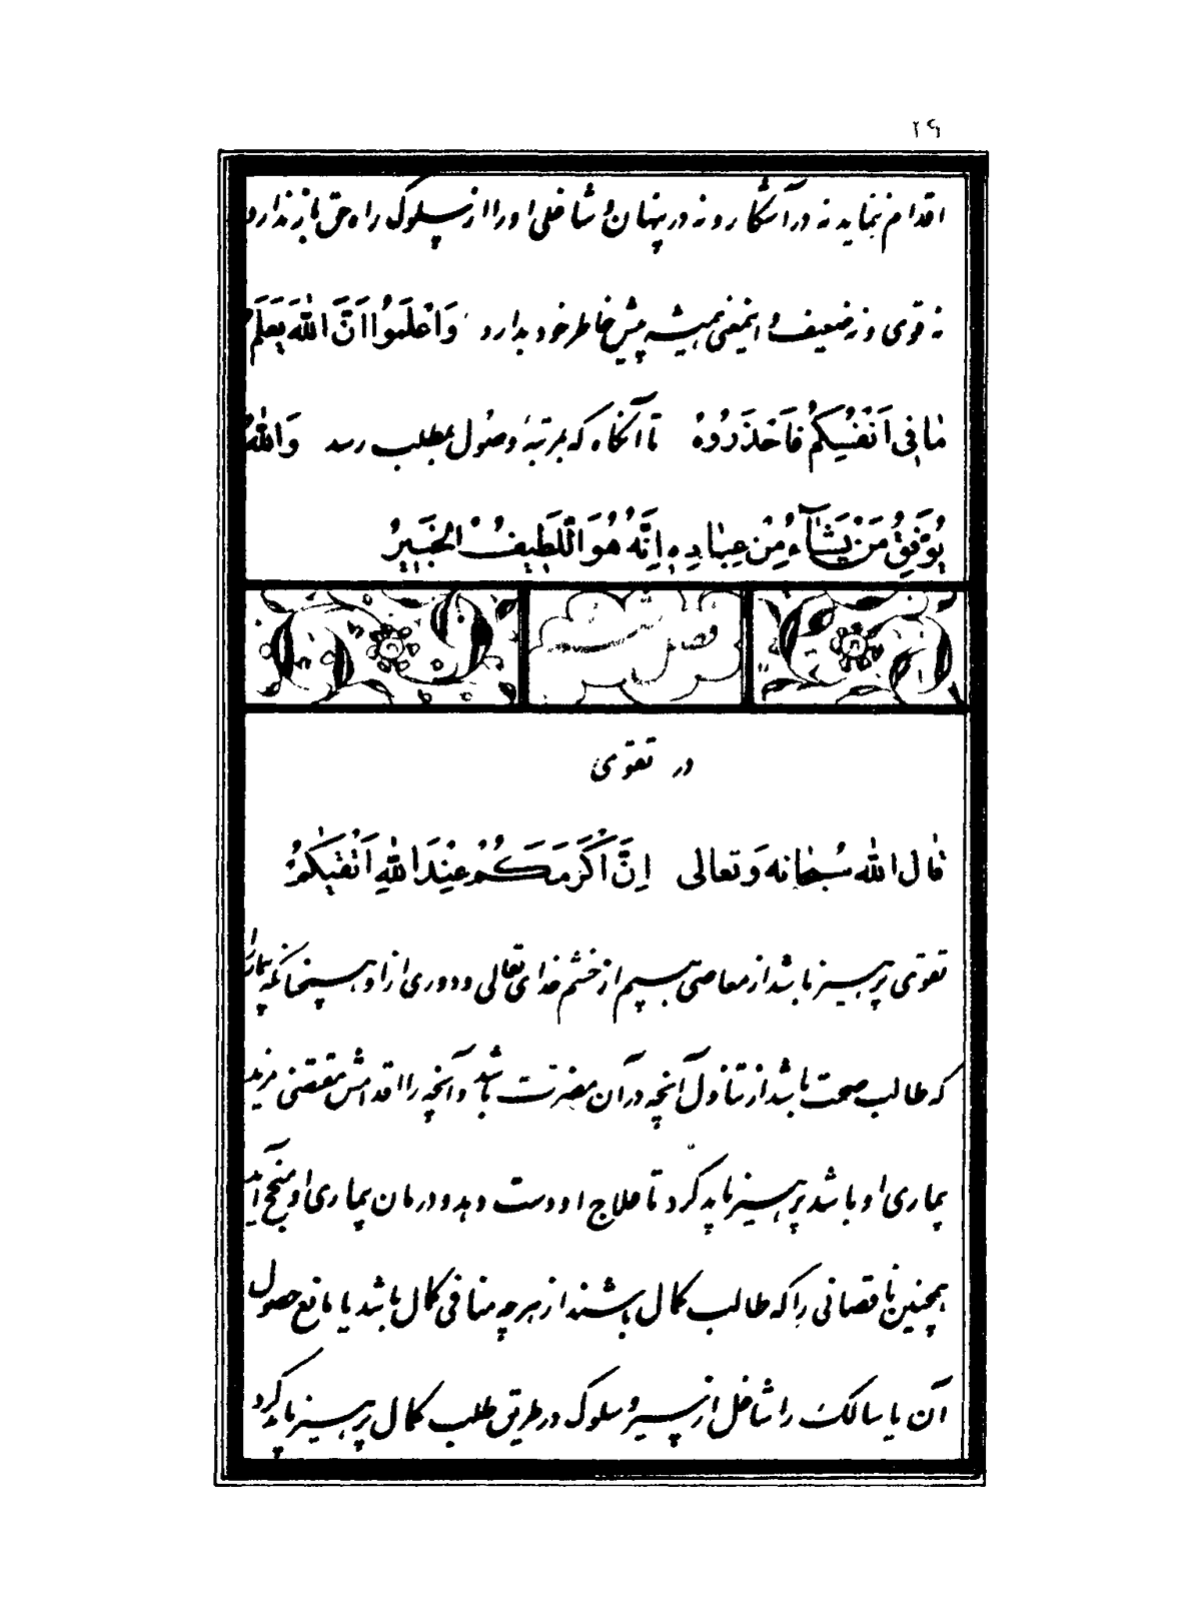 ۲۹
اقدام ننماید نه در آشکار و نه در پنهان و شاغلی او را از سلوک راه حق باز ندارد
نه قوی و نه ضعیف و این معنی همیشه پیش خاطر خود بدارد وَاعْلَمُوا اَنَّ اللّٰهَ یَعْلَمُ
مٰا فِی اَنْفُسِکُمْ فَاحْذَرُوهُ تا آنگاه که بمرتبهٔ وصول بمطلب رسد وَاللّٰهُ
یُوَفِّقُ مَنْ یَشٰآءُ مِنْ عِبٰادِهِ اِنَّهُ هُوَ اللَّطِیفُ الْخَبِیرُ
فصل ششم
در تقوی
قٰال اللّٰه سُبْحٰانه وَ تعالی اِنَّ اَکْرَمَکُمْ عِنْدَ اللّٰهِ اَتْقٰیکُمْ
تقوی پرهیز باشد از معاصی به بیم از خشم خدای تعالی و دوری از او همچنانکه بیمار
که طالب صحت باشد از تناول آنچه در آن مضرت باشد و آنچه را اقدامش مقتضی مزید
بیماری او باشد پرهیز باید کرد تا علاج او دست دهد و درمان بیماری او منجح آید
همچنین ناقصانی را که طالب کمال باشند از هر چه منافی کمال باشد یا مانع حصول
آن یا سالک را شاغل از سیر و سلوک در طریق طلب کمال پرهیز باید کرد